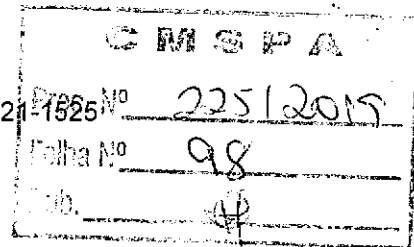 CMSPA
21-1525
Proc. Nº 225/2019
Folha Nº 98
Rub.